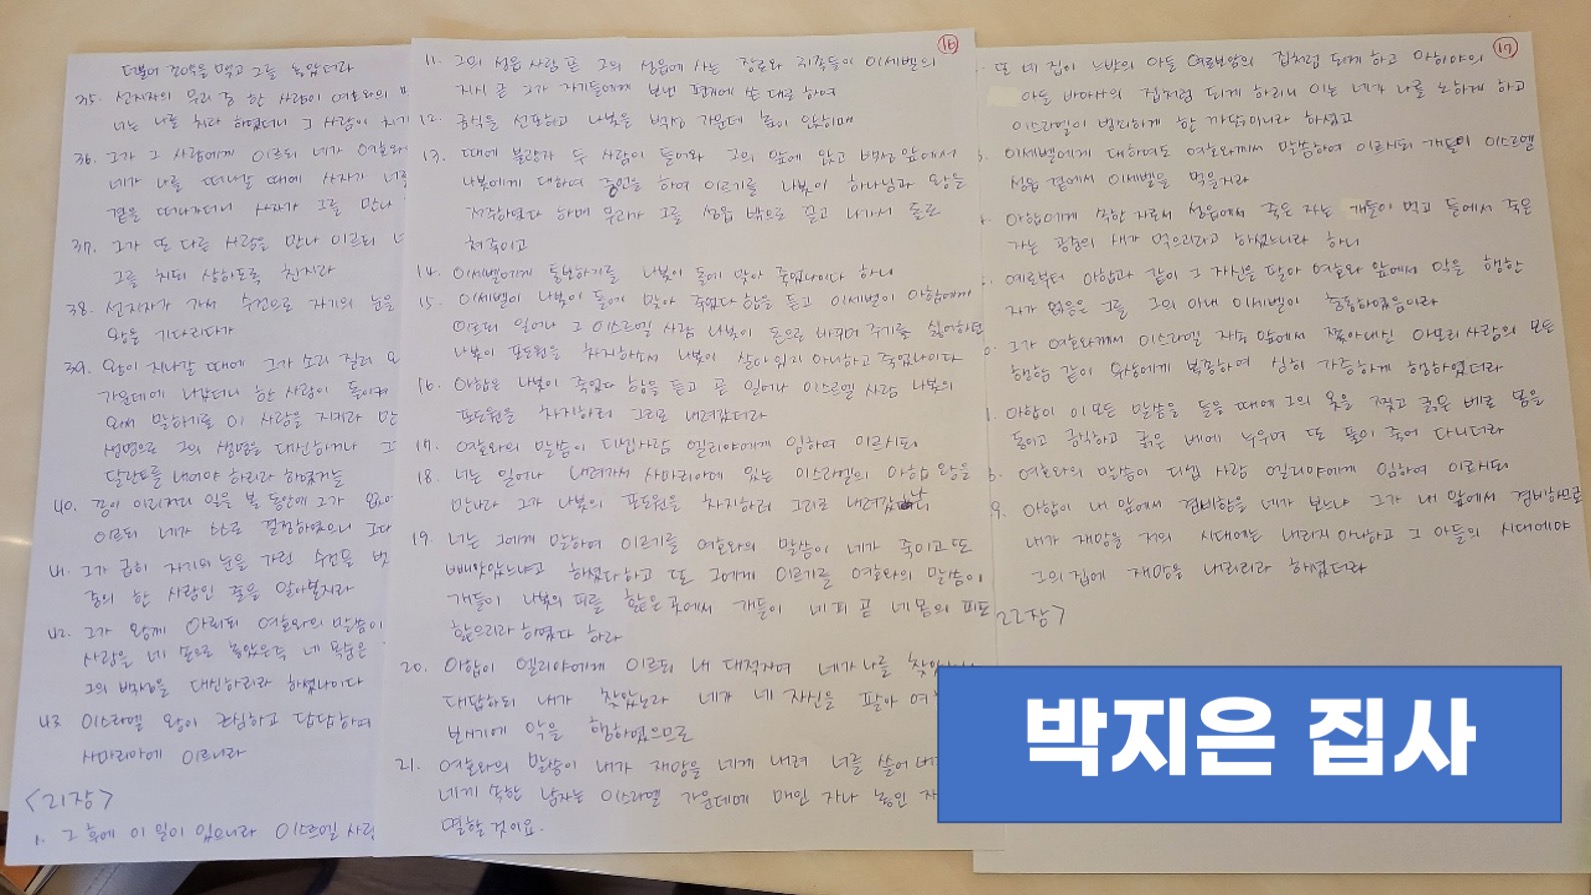 더불어 조약을 맺고 그를 놓았더라
35. 선지자의 무리 중 한 사람이 여호와의
너는 나를 치라 하였더니 그 사람이 치기
36. 그가 그 사람에게 이르되 네가 여호와
네가 나를 떠나갈 때에 사자가 너를
곁을 떠나가더니 사자가 그를 만나
37. 그가 또 다른 사람을 만나 이르되
그를 치되 상하도록 친지라
38. 선지자가 가서 수건으로 자기의 눈을
왕을 기다리다가
39. 왕이 지나갈 때에 그가 소리 질러
가운데에 나갔더니 한 사람이 돌이켜
와서 말하기를 이 사람을 지키라 만
생명으로 그의 생명을 대신하거나 그
달란트를 내어야 하리라 하였거늘
40. 종이 이리저리 일을 볼 동안에 그가 없어
이르되 네가 스스로 결정하였으니 그대
41. 그가 급히 자기의 눈을 가린 수건을 벗
중의 한 사람인 줄을 알아본지라
42. 그가 왕께 아뢰되 여호와의 말씀이
사람을 네 손으로 놓았은즉 네 목숨은
그의 백성을 대신하리라 하셨나이다
43 이스라엘 왕이 근심하고 답답하여
사마리아에 이르니라
<21장>
1. 그 후에 이 일이 있으니라 이스르엘 사람
16
11. 그의 성읍 사람 곧 그의 성읍에 사는 장로와 귀족들이 이세벨의
지시 곧 그가 자기들에게 보낸 편지에 쓴 대로 하여
12. 금식을 선포하고 나봇을 백성 가운데 높이 앉히매
13. 때에 불량자 두 사람이 들어와 그의 앞에 앉고 백성 앞에서
나봇에게 대하여 증언을 하여 이르기를 나봇이 하나님과 왕을
저주하였다 하매 무리가 그를 성읍 밖으로 끌고 나가서 돌로
쳐죽이고
14. 이세벨에게 통보하기를 나봇이 돌에 맞아 죽었나이다 하니
15. 이세벨이 나봇이 돌에 맞아 죽었다 함을 듣고 이세벨이 아합에게
이르되 일어나 그 이스르엘 사람 나봇이 돈으로 바꾸어 주기를 싫어하던
나봇의 포도원을 차지하소서 나봇이 살아 있지 아니하고 죽었나이다
16. 아합은 나봇이 죽었다 함을 듣고 곧 일어나 이스르엘 사람 나봇의
포도원을 차지하러 그리로 내려갔더라
17. 여호와의 말씀이 디셉사람 엘리야에게 임하여 이르시되
18. 너는 일어나 내려가서 사마리아에 있는 이스라엘의 아합 왕을
만나라 그가 나봇의 포도원을 차지하러 그리로 내려갔나니
19. 너는 그에게 말하여 이르기를 여호와의 말씀이 네가 죽이고 또
빼앗았느냐고 하셨다하고 또 그에게 이르기를 여호와의 말씀이
개들이 나봇의 피를 핥은 곳에서 개들이 네 피 곧 네 몸의 피도
핥으리라 하였다 하라
20. 아합이 엘리야에게 이르되 내 대적자여 네가 나를
대답하되 내가 찾았노라 네가 네 자신을 팔아 여
보시기에 악을 행하였으므로
21. 여호와의 말씀이 내가 재앙을 네게 내려 너를 쓸어 버
네게 속한 남자는 이스라엘 가운데에 매인 자나 놓인 자
멸할 것이요.
17
또 네 집이 느밧의 아들 여로보암의 집처럼 되게 하고 아히야의
아들 바아사의 집처럼 되게 하리니 이는 네가 나를 노하게 하고
이스라엘이 범죄하게 한 까닭이니라 하셨고
이세벨에게 대하여도 여호와께서 말씀하여 이르시되 개들이 이스르엘
성읍 곁에서 이세벨을 먹을지라
아합에게 속한 자로서 성읍에서 죽은 자는 개들이 먹고 들에서 죽은
자는 공중의 새가 먹으리라고 하셨느니라 하니
예로부터 아합과 같이 그 자신을 팔아 여호와 앞에서 악을 행한
자가 없음은 그를 그의 아내 이세벨이 충동하였음이라
그가 여호와께서 이스라엘 자손 앞에서 쫓아내신 아모리 사람의 모든
행함 같이 우상에게 복종하여 심히 가증하게 행하였더라
아합이 이 모든 말씀을 들을 때에 그의 옷을 찢고 굵은 베로 몸을
동이고 금식하고 굵은 베에 누우며 또 풀이 죽어 다니더라
여호와의 말씀이 디셉 사람 엘리야에게 임하여 이르시되
9. 아합이 내 앞에서 겸비함을 네가 보느냐 그가 내 앞에서 겸비하므로
내가 재앙을 저의 시대에는 내리지 아니하고 그 아들의 시대에야
그의 집에 재앙을 내리리라 하셨더라
22장>
박지은 집사